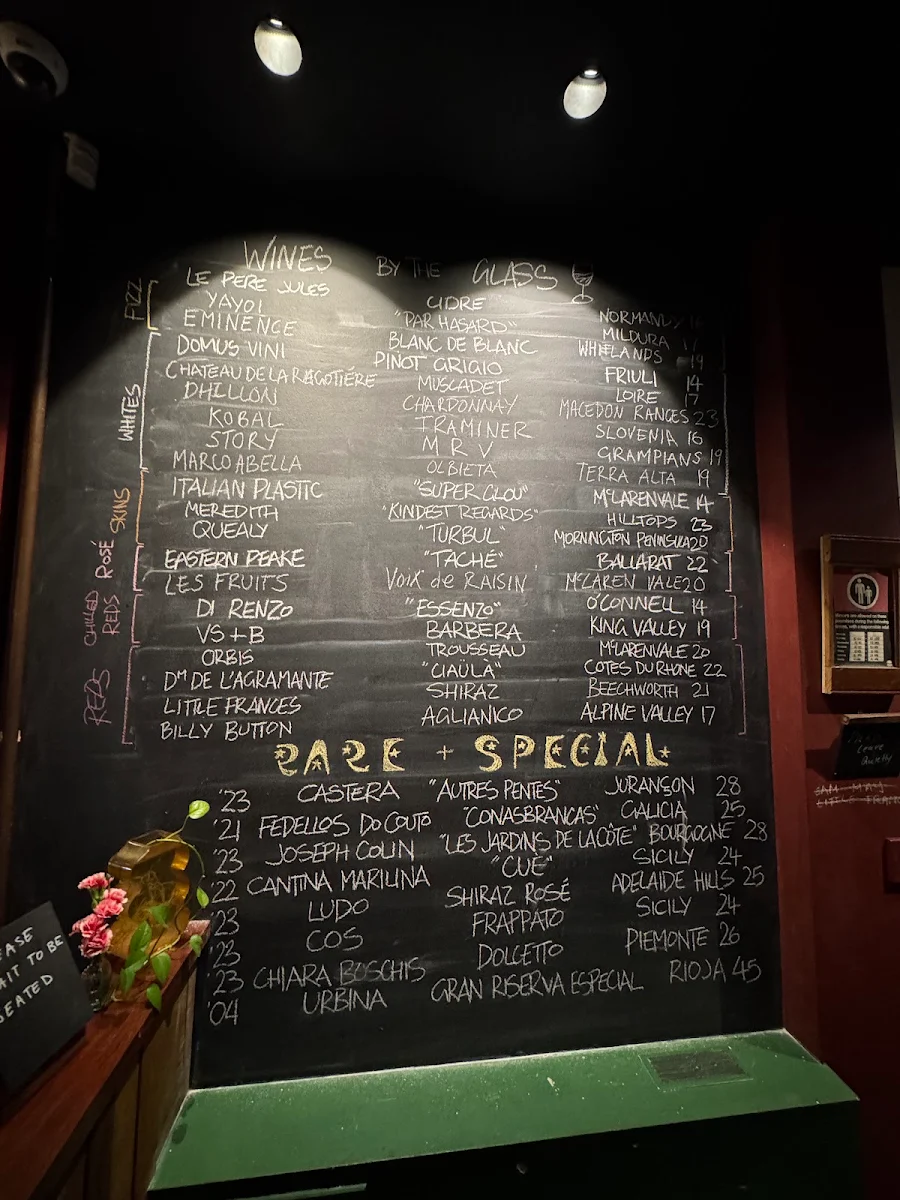 WINES BY THE GLASS
FIZZ
LE PERE JULES CIDRE NORMANDY
YAYOI "PAR HASARD" MILDURA 17
EMINENCE BLANC DE BLANC WHITLANDS 19
WHITES
DOMUS VINI PINOT GRIGIO FRIULI 14
CHATEAU DE LA RAGOTIÉRE MUSCADET LOIRE 17
DHILLON CHARDONNAY MACEDON RANGES 23
KOBAL TRAMINER SLOVENIA 16
STORY M R V GRAMPIANS 19
MARCO ABELLA OLBIETA TERRA ALTA 19
SKINS
ITALIAN PLASTIC "SUPER GLOU" McLARENVALE 14
MEREDITH "KINDEST REGARDS" HILLTOPS 23
QUEALY "TURBUL" MORNINGTON PENINSULA 20
ROSÉ
EASTERN PEAKE "TACHÉ" BALLARAT 22
LES FRUITS VOIX de RAISIN McLAREN VALE 20
CHILLED REDS
DI RENZO "ESSENZO" O'CONNELL 14
VS + B BARBERA KING VALLEY 19
REDS
ORBIS TROUSSEAU McLARENVALE 20
DM DE L'AGRAMANTE "CIAÜLÀ" COTES DU RHONE 22
LITTLE FRANCES SHIRAZ BEECHWORTH 21
BILLY BUTTON AGLIANICO ALPINE VALLEY 17
RARE + SPECIAL
'23 CASTERA "AUTRES PENTES" JURANÇON 28
'21 FEDELLOS DO COUTO "CONASBRANCAS" GALICIA 25
'23 JOSEPH COLIN "LES JARDINS DE LA CÔTE" BOURGOGNE 28
'22 CANTINA MARILINA "CUÈ" SICILY 24
'23 LUDO SHIRAZ ROSÉ ADELAIDE HILLS 25
'23 COS FRAPPATO SICILY 24
'23 CHIARA BOSCHIS DOLCETTO PIEMONTE 26
'04 URBINA GRAN RISERVA ESPECIAL RIOJA 45
EASE
AIT TO BE
SEATED
Leave
Quietly
SAM MAY
LITTLE